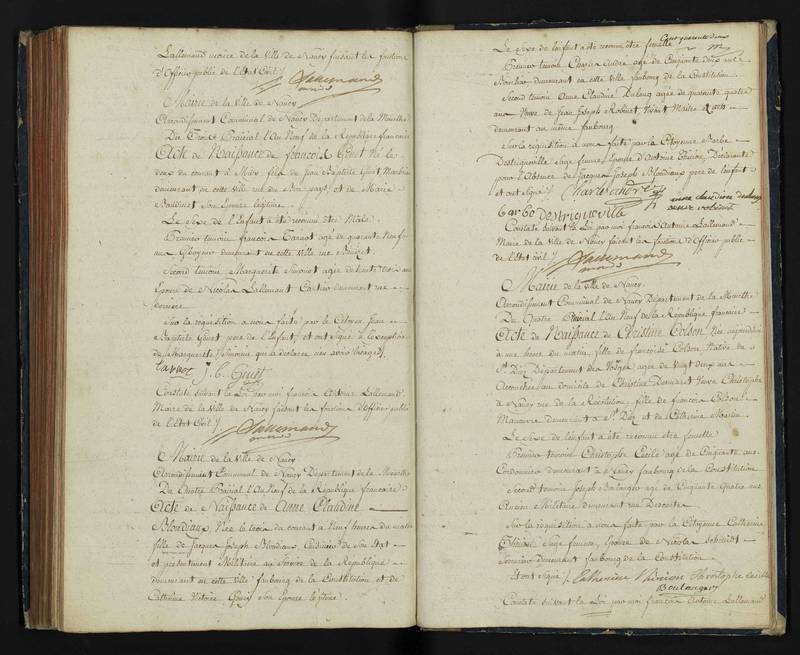 Lallemand maire de la ville de Nancy faisant les fonctions
d'Officier public de l'Etat Civil
Lallemand
maire
Mairie de la ville de Nancy
Arrondissement Communal de Nancy Département de la Meurthe
Du Trois Prairial l'An Neuf de la République française
Acte de Naissance de françois Guiot Né le
deux du courant à Midy fils de Jean Baptiste Guiot
demeurant en cette ville rue du Bon pays et de Marie
son Epouse légitime
Le Sexe de l'Enfant a été reconnu être Mâle
Premier temoin françois Tarnot agé de quarante Neuf
ans demeurant en cette Ville rue
Second temoin Marguerite Simonet agée de trente trois ans
Epouse de Nicolas Lallemant Cartier demeurant rue
derrière
Sur la réquisition a nous faite par le Citoyen Jean
Baptiste Guiot pere de l'Enfant et ont signé à l'exception
de Marguerite Simonet qui a déclarée
J. B. Guiot
Constaté suivant la Loi par moi françois Antoine Lallemand
Maire de la Ville de Nancy faisant les fonctions d'Officier public
de l'Etat Civil
Lallemand
maire
Mairie de la Ville de Nancy
Arrondissement Communal de Nancy Département de la Meurthe
Du Quatre Prairial l'An Neuf de la République francaise
Acte de Naissance de Anne Claudine
Blondiaux Née le trois du courant à Neuf heures du matin
fille de Jacques Joseph Blondiaux Cuisinier de son Etat
et présentement Militaire au Service de la République
demeurant en cette ville faubourg de la Constitution et de
Catherine son Epouse légitime
Le Sexe de l'enfant a été reconnu être femelle
Premier temoin Charles André agé de Cinquante deux ans
demeurant en cette ville faubourg de la Constitution
Second temoin Anne Claudine agée de quarante quatre
ans Veuve de Jean Joseph Robinet, Vivant Maitre
demeurant au même faubourg
Sur la réquisition à nous faite par la Citoyenne Barbe
Destriguville Sage femme Epouse d'Antoine Déclarante
pour l'Absence de Jacques Joseph Blondiaux pere de l'enfant
et ont signé
Charle andre
Destriguville
Constaté suivant la Loi par moi françois Antoine Lallemand
Maire de la Ville de Nancy faisant les fonctions d'Officier public
de l'Etat Civil
Lallemand
maire
Mairie de la Ville de Nancy
Arrondissement Communal de Nancy Département de la Meurthe
Du Quatre Prairial l'An Neuf de la République française
Acte de Naissance de Christine Colson Née aujourd'hui
à une heure du matin, fille de françoise Colson Native de
St Diez Département des Vosges agée de Vingt deux ans
accouchée au domicile de Christine Veuve Christophe
à Nancy rue de la Révolution, fille de françois Colson
demeurant à St Diez et de Catherine
Le Sexe de l'enfant a été reconnu être femelle
Premier temoin Christophe Cecile agé de Cinquante ans
Cordonnier demeurant à Nancy faubourg de la Constitution
Second temoin Joseph Boulanger agé de Cinquante Quatre ans
Militaire demeurant rue Descartes
Sur la réquisition a nous faite par la Citoyenne Catherine
Thirion Sage femme, Epouse de Nicolas
demeurant faubourg de la Constitution
Et ont signé Catherine Thirion Christophe Cecille
Boulanger
Constaté suivant la Loi par moi françois Antoine Lallemand